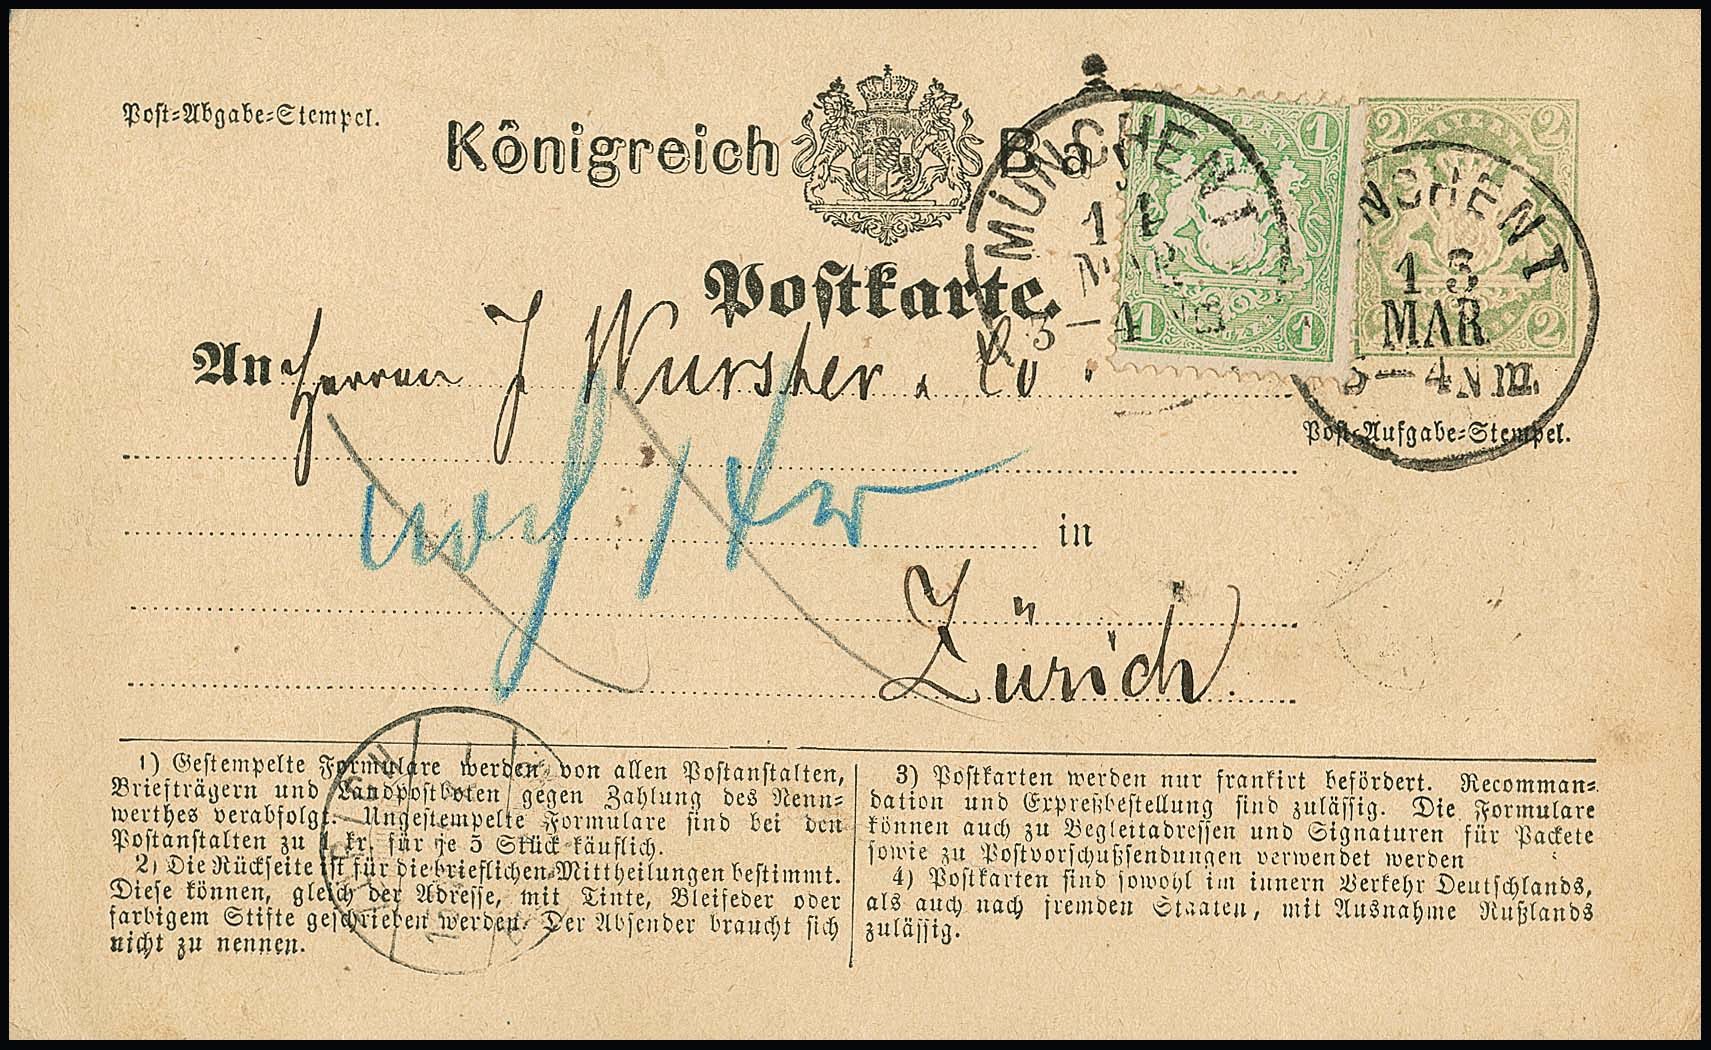 Post-Abgabe-Stempel.
Königreich Ba
Postkarte.
MÜNCHEN I
MAR
3—4
BAYERN
1 1
1 1
2 2
2
NCHEN I
13
MAR
3—4 NM.
Post-Aufgabe-Stempel.
An Herren J Wurster & Co.
noch 1 kr
in
Zürich.
1) Gestempelte Formulare werden von allen Postanstalten,
Briefträgern und Landpostboten gegen Zahlung des Nenn-
werthes verabfolgt. Ungestempelte Formulare sind bei den
Postanstalten zu 1 kr. für je 5 Stück käuflich.
2) Die Rückseite ist für die brieflichen Mittheilungen bestimmt.
Diese können, gleich der Adresse, mit Tinte, Bleifeder oder
farbigem Stifte geschrieben werden. Der Absender braucht sich
nicht zu nennen.
3) Postkarten werden nur frankirt befördert. Recomman-
dation und Expreßbestellung sind zulässig. Die Formulare
können auch zu Begleitadressen und Signaturen für Packete
sowie zu Postvorschußsendungen verwendet werden
4) Postkarten sind sowohl im innern Verkehr Deutschlands,
als auch nach fremden Staaten, mit Ausnahme Rußlands
zulässig.